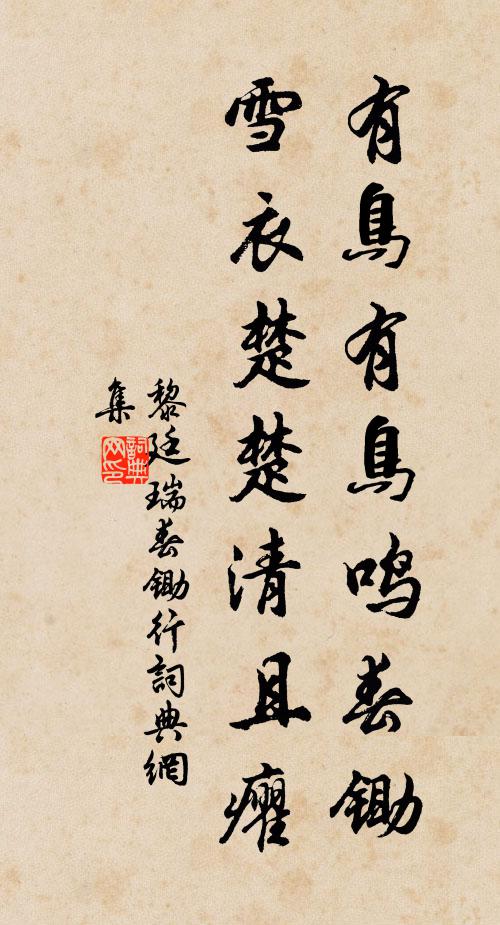 有鳥有鳥鳴春鋤
雪衣楚楚清且癯
黎廷瑞春鋤行詞典網
集
詞典
网印